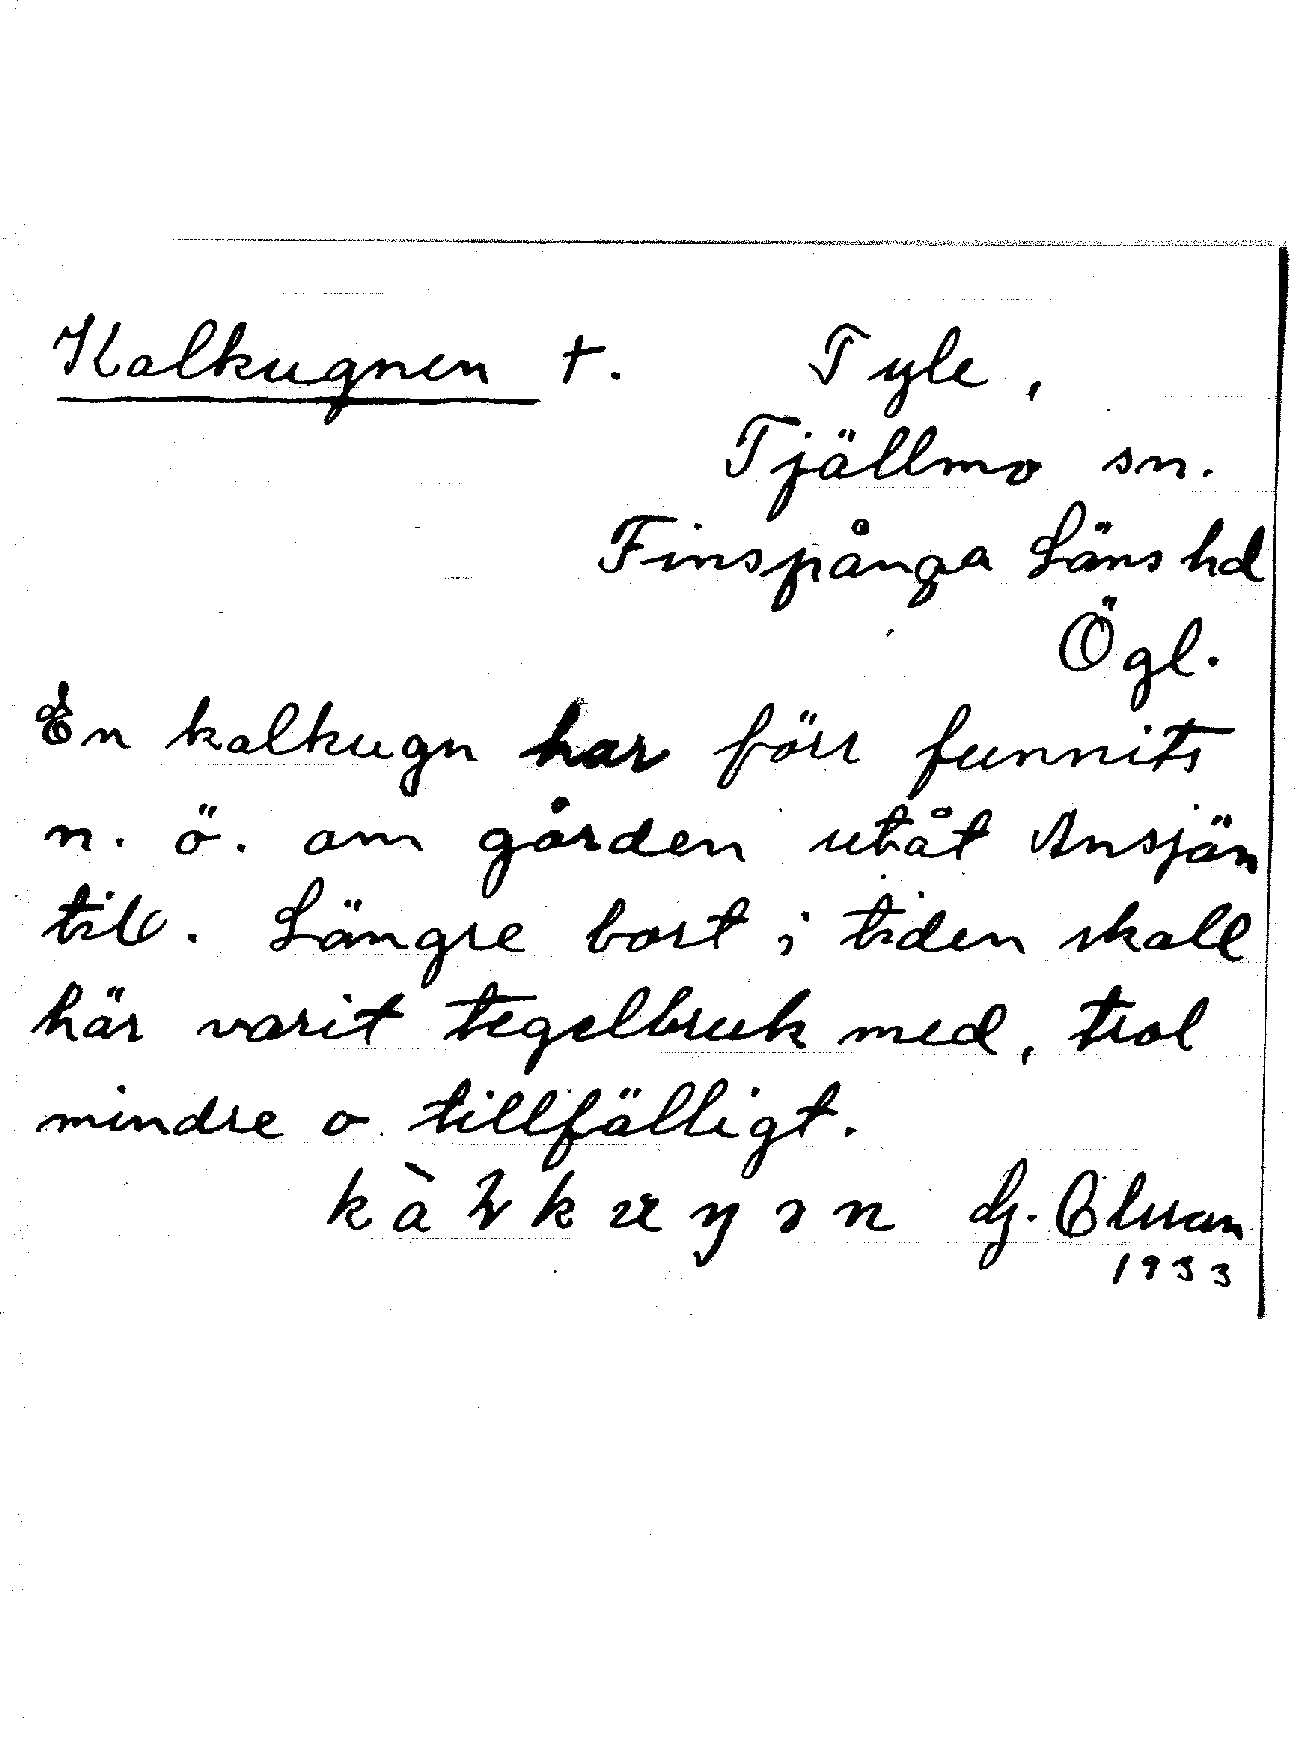 Kalkugnen †. Tyle,
Tjällmo sn.
Finspånga Läns hd
Ögl.
En kalkugn har förr funnits
n. ö. om gården utåt Ansjön
till. Längre bort i tiden skall
här varit tegelbruk med, trol
mindre o tillfälligt.
G.
1933